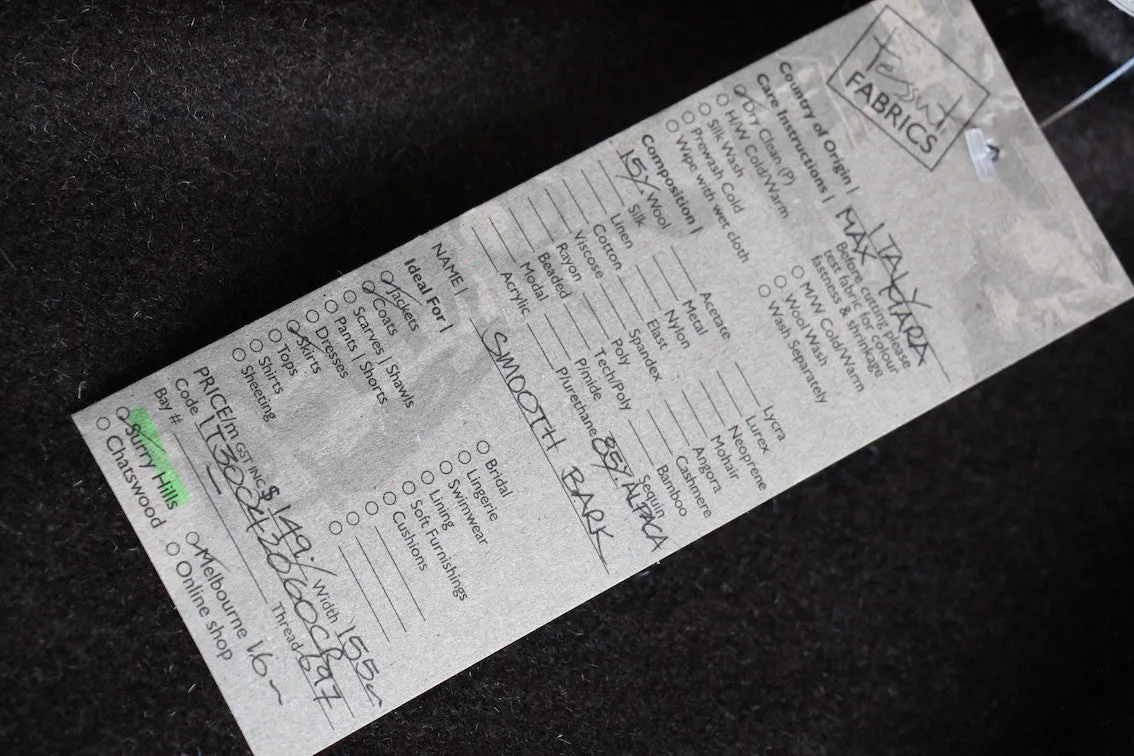 tessuti
FABRICS
Country of Origin | ITALY
Care Instructions | MAX MARA
Dry Clean (P)
H/W Cold/Warm
Silk Wash
Prewash Cold
Wipe with wet cloth
Before cutting please
test fabric for colour
fastness & shrinkage
M/W Cold/Warm
Wool Wash
Wash Separately
Composition |
15% Wool
Silk
Linen
Cotton
Viscose
Rayon
Beaded
Modal
Acrylic
Acetate
Metal
Nylon
Elast
Spandex
Poly
Tech/Poly
P/mide
P/urethane
Lycra
Lurex
Neoprene
Mohair
Angora
Cashmere
Bamboo
Sequin
85% ALPACA
NAME | SMOOTH BARK
Ideal For |
Jackets
Coats
Scarves | Shawls
Pants | Shorts
Dresses
Skirts
Tops
Shirts
Sheeting
Bridal
Lingerie
Swimwear
Lining
Soft Furnishings
Cushions
PRICE/m GST INC $ 149 Width 155
Code
Bay # Thread 697
Surry Hills
Chatswood
Melbourne 16m
Online shop